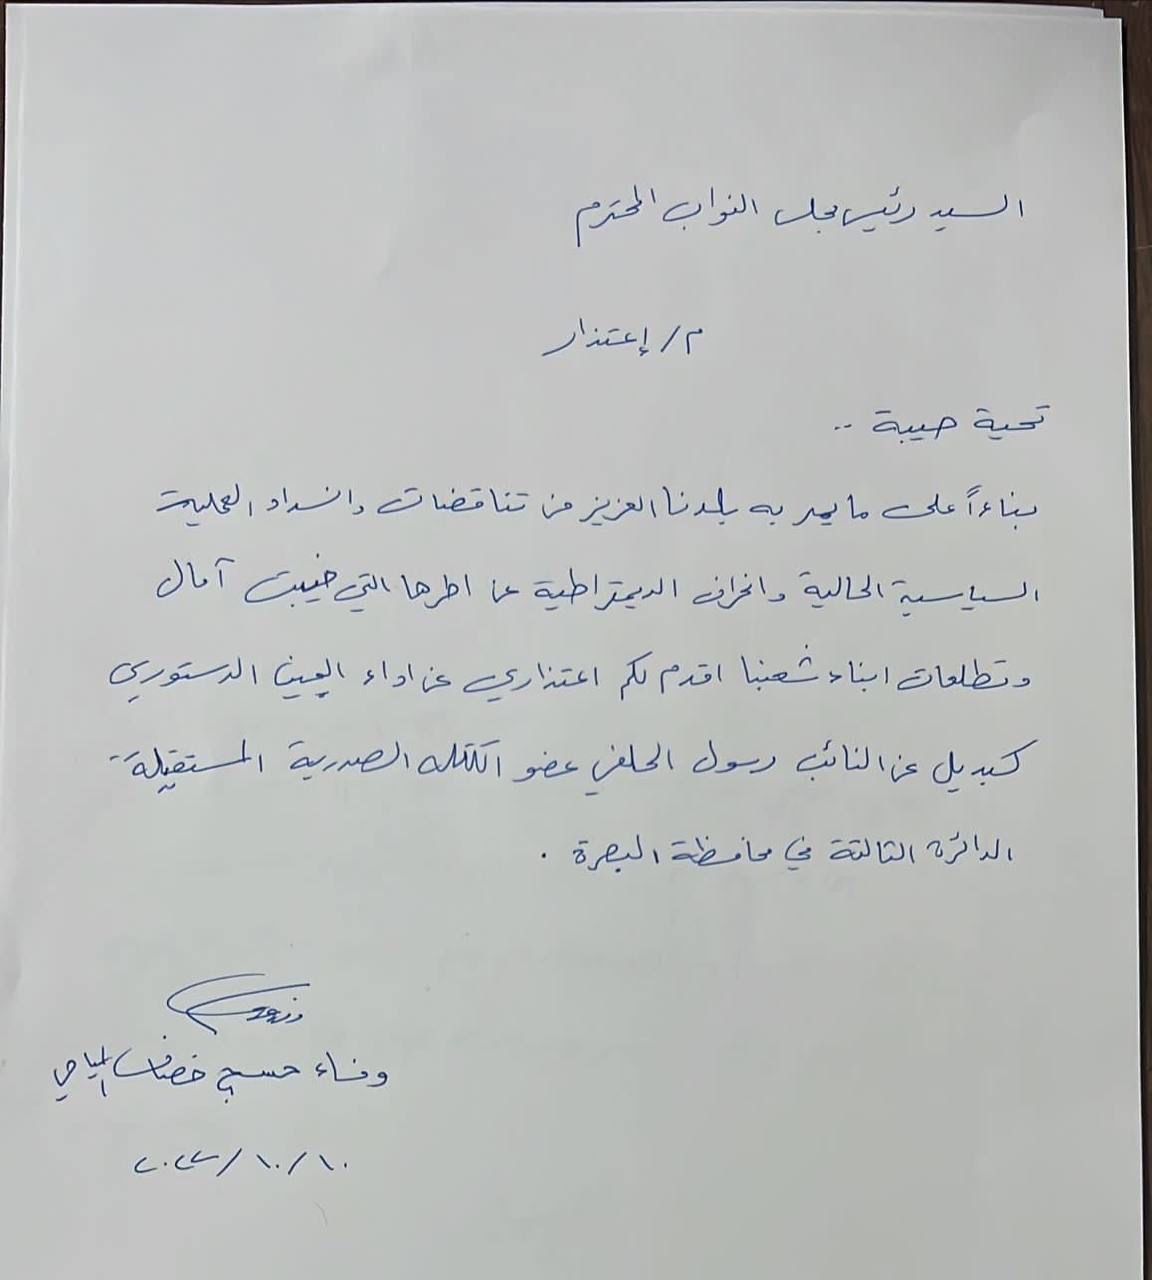 السيد رئيس مجلس النواب المحترم
م/ إعتذار
تحية طيبة ..
بناءاً على ما يمر به بلدنا العزيز من تناقضات وانسداد العملية
السياسية الحالية وانحراف الديمقراطية عن اطرها التي خيبت آمال
وتطلعات ابناء شعبنا اقدم لكم اعتذاري عن اداء اليمين الدستوري
كبديل عن النائب رسول الحلفي عضو الكتله الصدرية المستقيلة
الدائرة الثالثة في محافظة البصرة .
وفاء حسين المياحي
٢٠٢٢/١٠/١٠